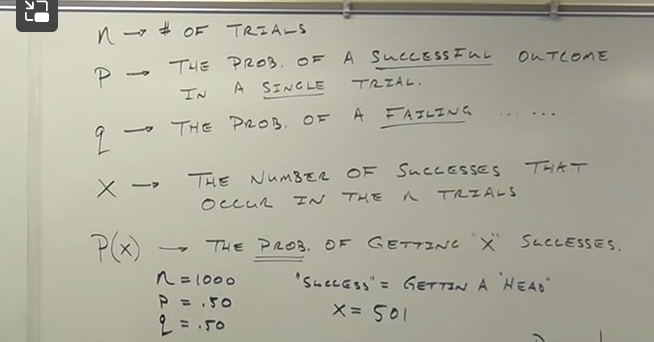 n → # OF TRIALS
P → THE PROB. OF A SUCCESSFUL OUTCOME
IN A SINGLE TRIAL.
q → THE PROB. OF A FAILING ......
X → THE NUMBER OF SUCCESSES THAT
OCCUR IN THE n TRIALS
P(x) → THE PROB. OF GETTING "X" SUCCESSES.
n = 1000 "SUCCESS" = GETTIN A "HEAD"
P = .50 X = 501
q = .50